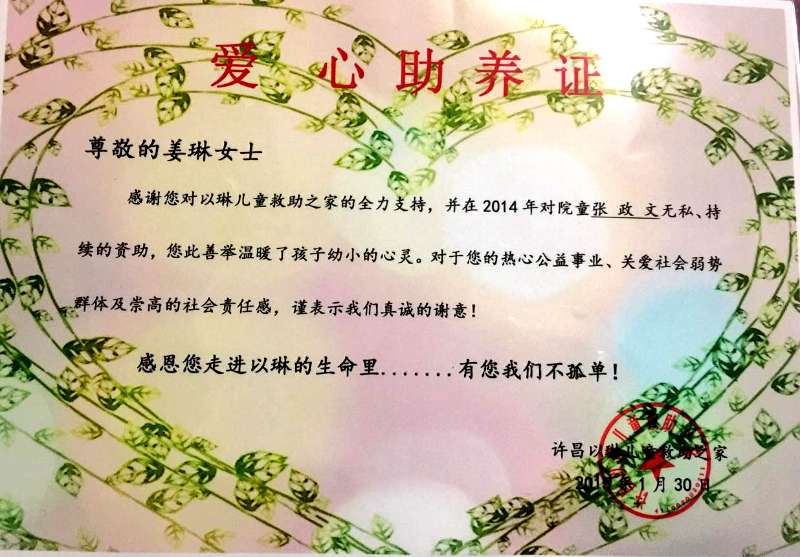 爱心助养证
尊敬的姜琳女士
感谢您对以琳儿童救助之家的全力支持，并在2014年对院童张 政 文无私、持
续的资助，您此善举温暖了孩子幼小的心灵。对于您的热心公益事业、关爱社会弱势
群体及崇高的社会责任感，谨表示我们真诚的谢意！
感恩您走进以琳的生命里.......有您我们不孤单！
许昌以琳儿童救助之家
年1月30日